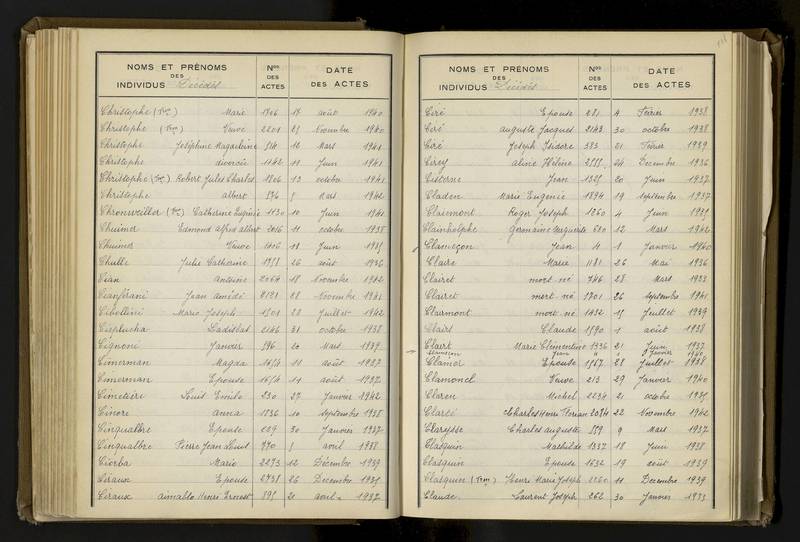 NOMS ET PRÉNOMS DES INDIVIDUS Décédés Nos DES ACTES DATE DES ACTES
Christophe Marie 17 août 1940
Christophe Veuve 2201 Novembre 1940
Christophe Joséphine Magdeleine 12 Mars 1941
Christophe divorcée 1142 19 Juin 1941
Christophe Robert Jules Charles 1806 13 octobre 1941
Christophe albert Mars 1942
Chronweiller Catherine Eugénie 1130 10 Juin 1941
Chuimer Edmond alfred albert 2016 11 octobre 1938
Chuimer Veuve 18 Juin
Chulte Julie Catherine 26 août 1936
Cian Antoine 2064 18 Novembre 1942
Cianférani Jean amédé 2121 28 Novembre 1941
Cibollini Marie Joseph 1501 28 Juillet 1942
Cieplucha Ladislas 2146 31 octobre 1938
Cignoni Janvier 596 20 Mars 1939
Cimerman Magda 11 août 1937
Cimerman Epouse 11 août 1937
Cimetière Louis Emile 230 27 Janvier 1942
Cinore anna 1836 10 septembre 1938
Cinqualbre Epouse 30 Janvier 1937
Cinqualbre Pierre Jean Louis 770 avril 1938
Ciorba Marie 2273 12 Décembre 1939
Ciraux Epouse 2738 26 Décembre
Ciraux aimable Henri Ernest 21 avril 1937
NOMS ET PRÉNOMS DES INDIVIDUS Décédés Nos DES ACTES DATE DES ACTES
Ciré Epouse 281 4 Février 1938
Ciré auguste Jacques 2143 30 octobre 1938
Ciré Joseph Isidore 383 21 Février 1939
Cirey aline Hélène 24 Décembre 1936
Cisterne Jean 20 Juin 1937
Claden Marie Eugénie 1894 19 septembre 1937
Claimont Roger Joseph 1260 4 Juin
Clainholphe Germaine Marguerite 12 Mars 1942
Clameçon Jean 4 1 Janvier 1940
Claire Marie 1181 26 Mai 1936
Clairet mort né 746 28 Mars 1933
Clairet mort né 1701 26 septembre 1941
Clairmont mort né 1432 Juillet 1939
Clairs Claude 1590 1 août 1938
Clairt Marie Clémentine 1336 21 Juin 1937
Jean 4 1 Janvier 1940
Clamer Epouse 1567 28 Juillet 1938
Clamonel Veuve 213 29 Janvier 1940
Claren Michel 2234 21 octobre
Clarei Charles Henri 2084 22 Novembre 1942
Clarysse Charles auguste 9 Mars 1937
Clasquin Mathilde 1337 18 Juin 1938
Clasquin Epouse 1632 19 août 1939
Clasquin Henri Marie Joseph 2260 11 Décembre 1939
Claude Laurent Joseph 262 30 Janvier 1933